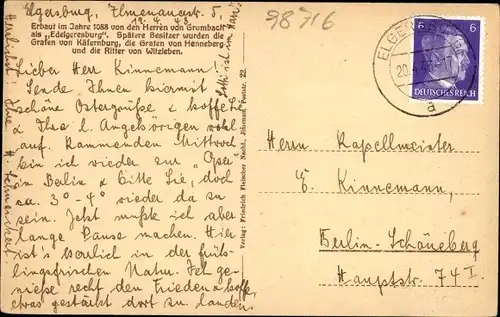 Elgersburg, Ilmenauerstr. 5,
19.4.43.
98716
Erbaut im Jahre 1088 von den Herren von Grumbach
als „Edelgeresburg“. Spätere Besitzer wurden die
Grafen von Käfernburg, die Grafen von Henneberg
und die Ritter von Witzleben.
Lieber Herr Kinnemann!
Sende Ihnen hiermit
schöne Ostergrüße & hoffe Sie
& Ihre l. Angehörigen wohl
auf. Kommenden Mittwoch
bin ich wieder zur „Ope“
in Berlin & bitte Sie, doch
ca. 3° - 4° wieder da zu
sein. Jetzt mußte ich aber
lange Pause machen. Hier
ist's herrlich in der früh-
lingsfrischen Natur. Ich ge-
nieße recht den Frieden & hoffe,
etwas gestärkt dort zu landen.
Herzlichst Ihre
Verlag: Friedrich Fleischer Nachf., Ilmenau Poststr. 22
ELGERSBURG
20.4.43
a
6 6
DEUTSCHES REICH
Herrn Kapellmeister
E. Kinnemann,
Berlin-Schöneberg
Hauptstr. 74 I